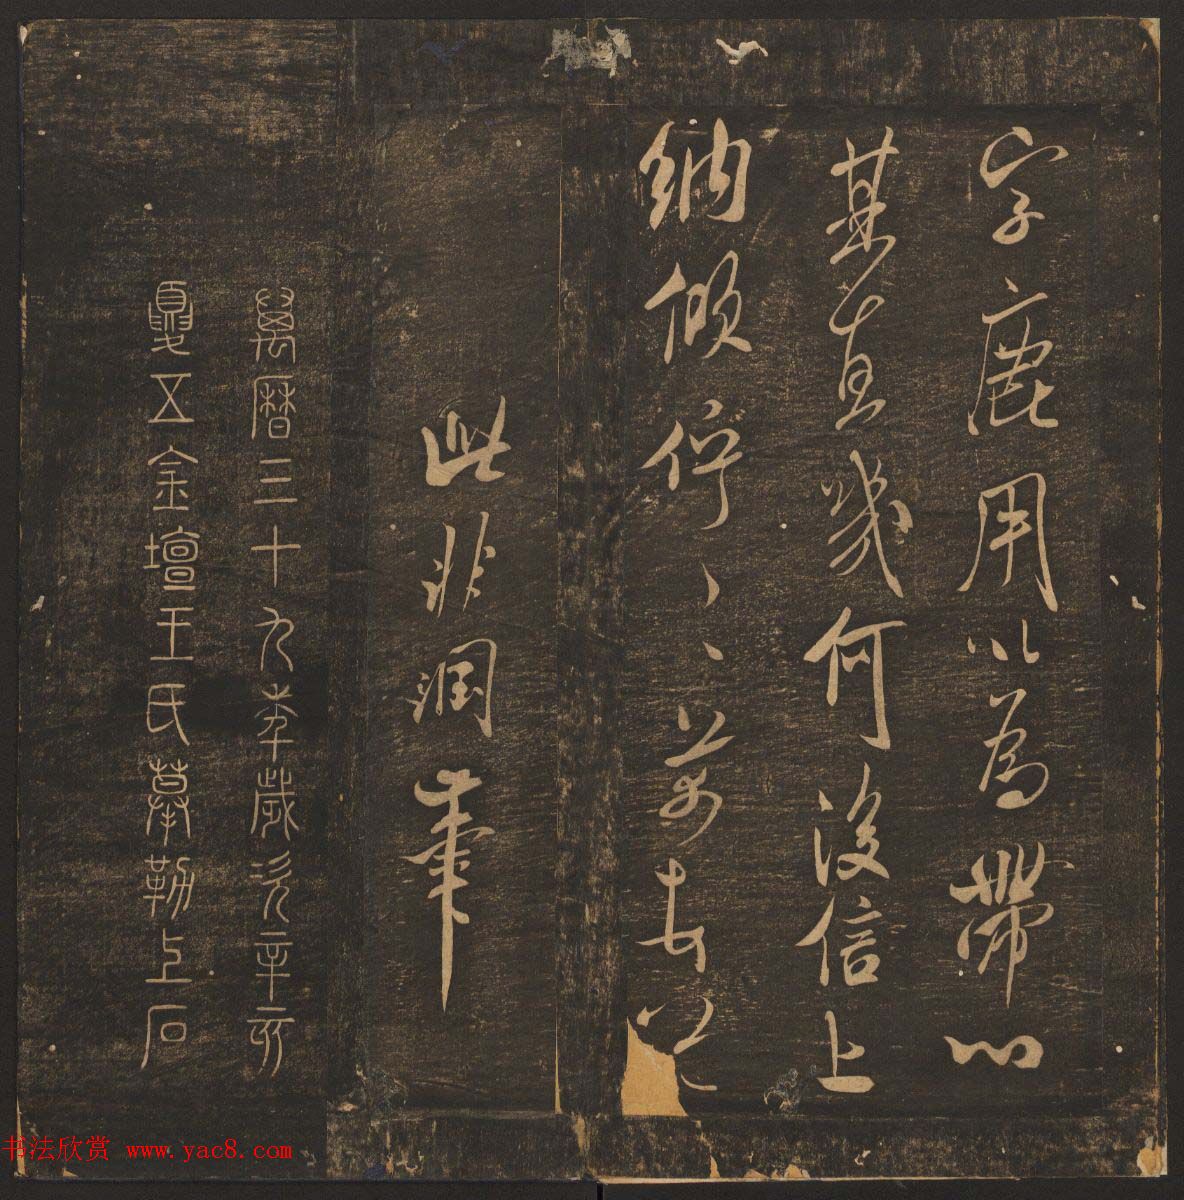 字鹿用以為帶不
其直幾何後信上
納傾佇〻〻前
此非潤筆
萬曆三十九年歲次辛亥
夏五金壇王氏摹勒上石
书法欣赏 www.yac8.com